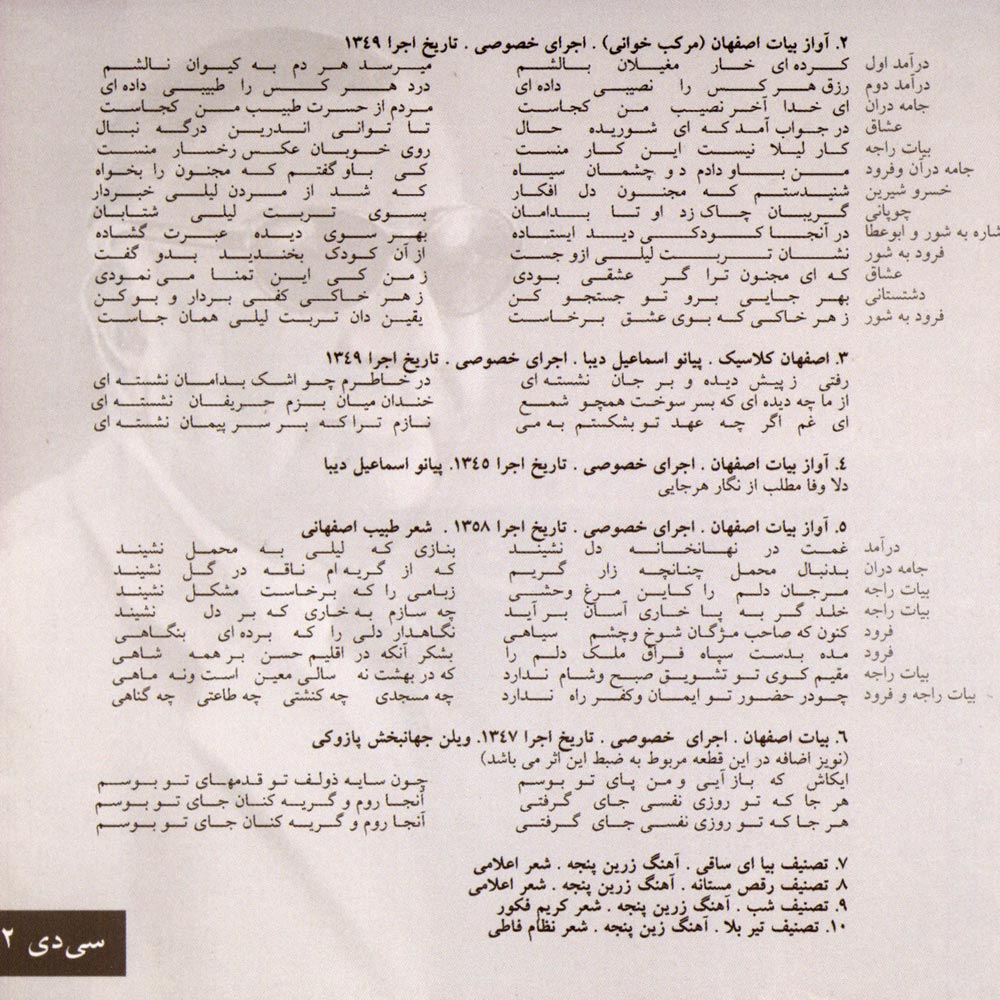 ۲. آواز بیات اصفهان (مرکب خوانی) . اجرای خصوصی . تاریخ اجرا ۱۳۴۹
درآمد اول کرده ای خار مغیلان بالشم میرسد هر دم به کیوان نالشم
درآمد دوم رزق هر کس را نصیبی داده ای درد هر کس را طبیبی داده ای
جامه دران ای خدا آخر نصیب من کجاست مردم از حسرت طبیب من کجاست
عشاق در جواب آمد که ای شوریده حال تا توانی اندرین درگه نبال
بیات راجه کار لیلا نیست این کار منست روی خوبان عکس رخسار منست
جامه درآن وفرود من باو دادم دو چشمان سیاه کی باو گفتم که مجنون را بخواه
خسرو شیرین شنیدستم که مجنون دل افکار که شد از مردن لیلی خبردار
چوپانی گریبان چاک زد او تا بدامان بسوی تربت لیلی شتابان
شاره به شور و ابوعطا در آنجا کودکی دید ایستاده بهر سوی دیده عبرت گشاده
فرود به شور نشان تربت لیلی ازو جست از آن کودک بخندید بدو گفت
عشاق که ای مجنون ترا گر عشقی بودی ز من کی این تمنا می نمودی
دشتستانی بهر جایی برو تو جستجو کن ز هر خاکی کفی بردار و بو کن
فرود به شور ز هر خاکی که بوی عشق برخاست یقین دان تربت لیلی همان جاست
۳. اصفهان کلاسیک . پیانو اسماعیل دیبا . اجرای خصوصی . تاریخ اجرا ۱۳۴۹
رفتی ز پیش دیده و بر جان نشسته ای در خاطرم چو اشک بدامان نشسته ای
از ما چه دیده ای که بسر سوخت همچو شمع خندان میان بزم حریفان نشسته ای
ای غم اگر چه عهد تو بشکستم به می نازم ترا که بر سر پیمان نشسته ای
۴. آواز بیات اصفهان . اجرای خصوصی . تاریخ اجرا ۱۳۴۵. پیانو اسماعیل دیبا
دلا وفا مطلب از نگار هرجایی
۵. آواز بیات اصفهان . اجرای خصوصی . تاریخ اجرا ۱۳۵۸ . شعر طبیب اصفهانی
درآمد غمت در نهانخانه دل نشیند بنازی که لیلی به محمل نشیند
جامه دران بدنبال محمل چنانچه زار گریم که از گریه ام ناقه در گل نشیند
بیات راجه مرجان دلم را کاین مرغ وحشی زبامی را که برخاست مشکل نشیند
بیات راجه خلد گر به پا خاری آسان بر آید چه سازم به خاری که بر دل نشیند
فرود کنون که صاحب مژگان شوخ وچشم سیاهی نگاهدار دلی را که برده ای بنگاهی
فرود مده بدست سپاه فراق ملک دلم را بشکر آنکه در اقلیم حسن بر همه شاهی
بیات راجه مقیم کوی تو تشویق صبح وشام ندارد که در بهشت نه سالی معین است ونه ماهی
بیات راجه و فرود چودر حضور تو ایمان وکفر راه ندارد چه مسجدی چه کنشتی چه طاعتی چه گناهی
۶. بیات اصفهان . اجرای خصوصی . تاریخ اجرا ۱۳۴۷. ویلن جهانبخش پازوکی
(نویز اضافه در این قطعه مربوط به ضبط این اثر می باشد)
ایکاش که باز آیی و من پای تو بوسم چون سایه ذولف تو قدمهای تو بوسم
هر جا که تو روزی نفسی جای گرفتی آنجا روم و گریه کنان جای تو بوسم
هر جا که تو روزی نفسی جای گرفتی آنجا روم و گریه کنان جای تو بوسم
۷. تصنیف بیا ای ساقی . آهنگ زرین پنجه . شعر اعلامی
۸. تصنیف رقص مستانه . آهنگ زرین پنجه . شعر اعلامی
۹. تصنیف شب . آهنگ زرین پنجه . شعر کریم فکور
۱۰. تصنیف تیر بلا . آهنگ زین پنجه . شعر نظام فاطی
سی‌دی ۲